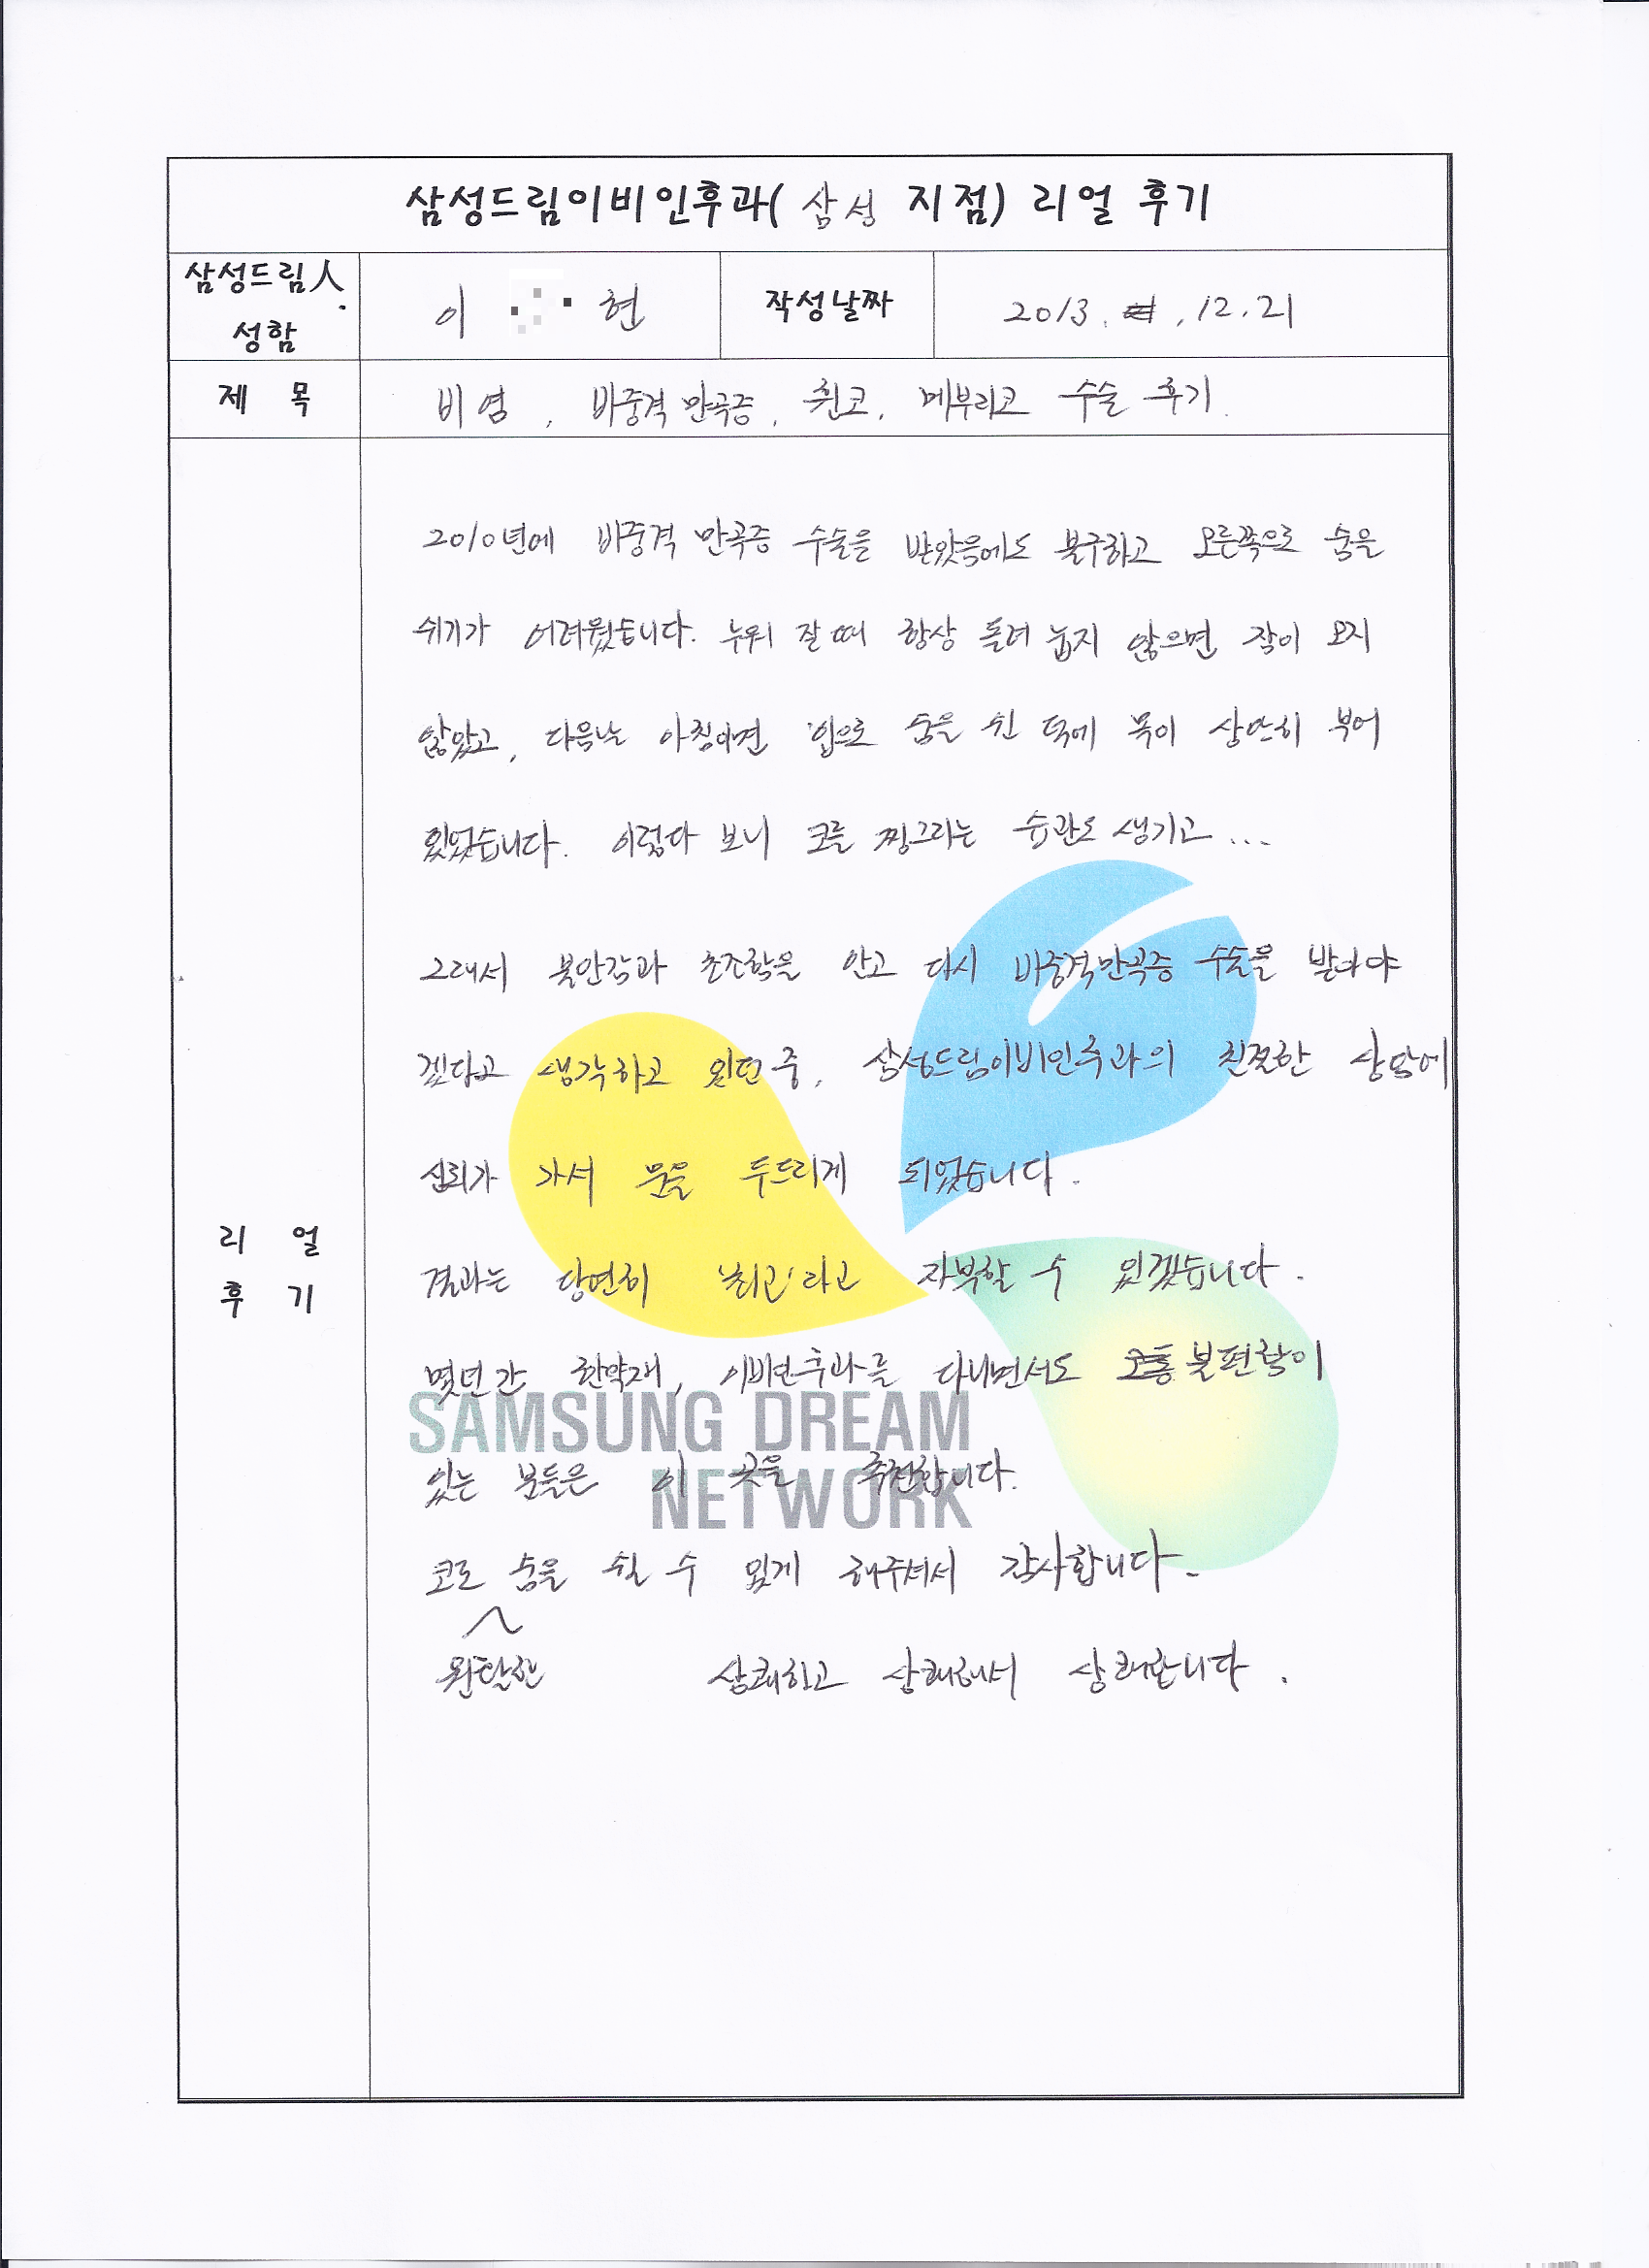 삼성드림이비인후과( 삼성 지점) 리얼 후기
삼성드림人
성함
이 현
작성날짜
2013. . 12. 21
제 목
비염, 비중격 만곡증, 휜코, 메부리코 수술 후기.
리 얼
후 기
2010년에 비중격 만곡증 수술을 받았음에도 불구하고 오른쪽으로 숨을
쉬기가 어려웠습니다. 누워 잘 때 항상 돌려 눕지 않으면 잠이 오지
않았고, 다음날 아침이면 입으로 숨을 쉰 덕에 목이 상당히 부어
있었습니다. 이렇다 보니 코를 찡그리는 습관도 생기고...
그래서 불안감과 초조함을 안고 다시 비중격만곡증 수술을 받아야
겠다고 생각하고 있던 중, 삼성드림이비인후과의 친절한 상담에
신뢰가 가서 문을 두드리게 되었습니다.
결과는 당연히 '최고'라고 자부할 수 있겠습니다.
몇년간 한약재, 이비인후과를 다니면서도 불편함이
있는 분들은 이 곳을 추천합니다.
코로 숨을 쉴 수 있게 해주셔서 감사합니다.
완탈한 상쾌하고 상쾌해서 상쾌합니다.
SAMSUNG DREAM
NETWORK